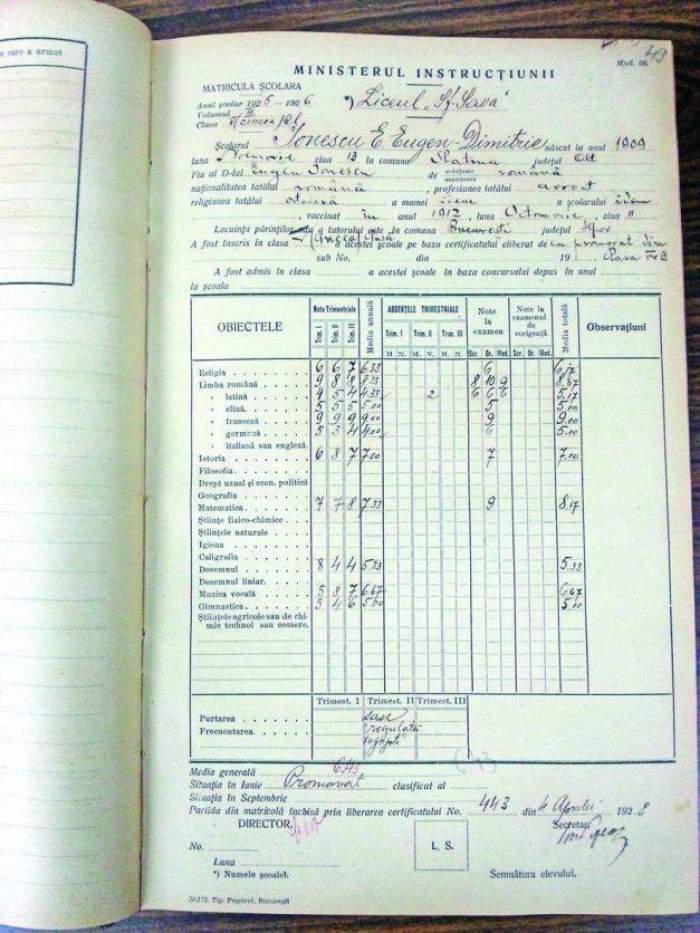 e care a urmat
49
Mod. 68.
MINISTERUL INSTRUCȚIUNII
MATRICULA ȘCOLARA
Anul școlar 1925 - 1926 *) Liceul „Sf. Sava"
Volumul II
Clasa V (cincea) rl.
Școlarul Ionescu E. Eugen-Dimitrie născut la anul 1909
luna Noemvrie ziua 13 în comuna Slatina județul Olt
Fiu al D-lui Eugen Ionescu de cetățenie română
naționalitatea tatălui română, profesiunea tatălui avocat
religiunea tatălui ortodoxă a mamei idem a școlarului idem
, vaccinat în anul 1912, luna Octomvrie, ziua 11
Locuința părinților sau a tutorului este în comuna București județul Ilfov
A fost înscris în clasa a acestei școale pe baza certificatului eliberat de
sub No. din 19 Clasa IV B
A fost admis în clasa a acestei școale în baza concursului depus în anul
la școala
OBIECTELE Note Trimestriale Media anuală ABSENȚELE TRIMESTRIALE Note la examen Note la examenul de corigență Media totală Observațiuni
Trim. I Trim. II Trim. III Trim. I Trim. II Trim. III
M. N. M. N. M. N. Scr. Or. Med. Scr. Or. Med.
Religia 6 6 7 6.33 6 6,17
Limba română 9 8 8 8.33 8 10 9 8,67
" latină 4 5 4 4.33 2 6 6 6 5,17
" elină 5 5 5 5.00 5 5,00
" franceză 9 9 9 9.00 9 9,00
" germană 5 3 4 4,00 6 5,00
" italiană sau engleză
Istoria 6 8 7 7,00 7 7,00
Filosofia
Drept uzual și econ. politică
Geografia
Matematica 7 7 8 7,33 9 8,17
Științe fizico-chimice
Științele naturale
Igiena
Caligrafia
Desemnul 8 4 4 5.33 5.33
Desemnul liniar
Muzica vocală 5 8 7 6.67 6,67
Gimnastica 5 4 6 5.00 5.00
Științele agricole sau de chimie technol sau comerc.
Trimest. I Trimest. II Trimest. III
Purtarea
Frecuentarea regulată
Media generală 6,43 6,43
Situația în Iunie Promovat clasificat al
Situația în Septembrie
Partida din matricolă închisă prin liberarea certificatului No. 443 din 4 Aprilie 1928
DIRECTOR, Secretar,
No. L. S.
Luna
*) Numele școalei. Semnătura elevului.
Tip. Poporul, București